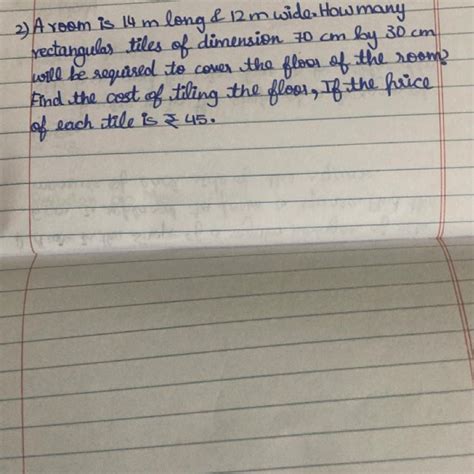 2) A room is 14 m long & 12 m wide. How many
rectangular tiles of dimension 70 cm by 30 cm
will be required to cover the floor of the room?
Find the cost of tiling the floor, If the price
of each tile is ₹ 45.